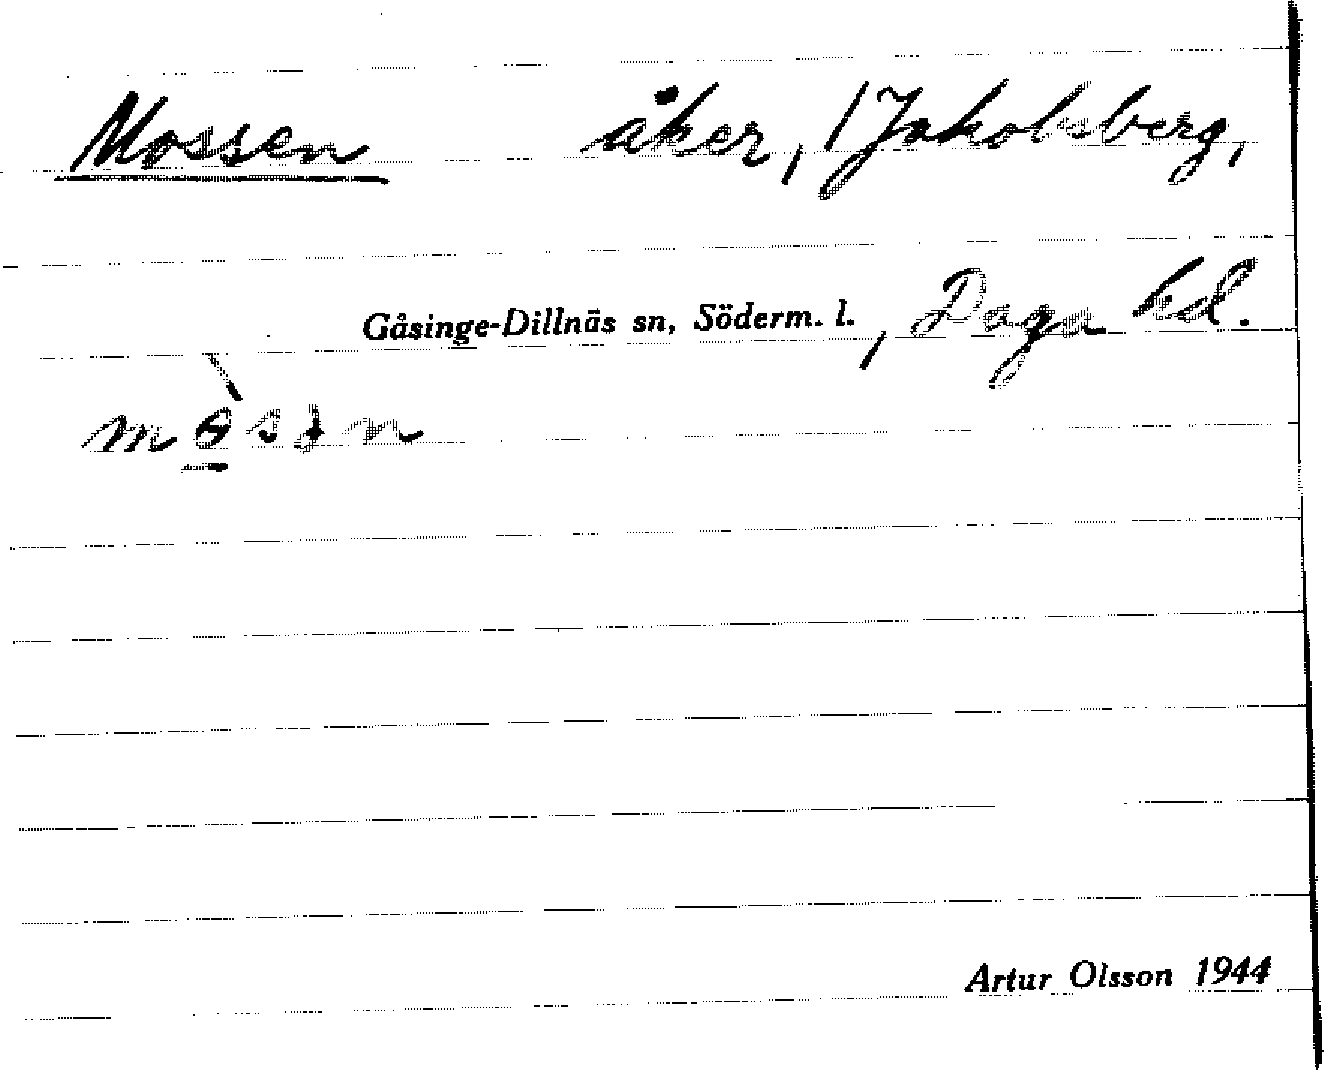 Mossen åker, Jakobsberg,
Gåsinge-Dillnäs sn, Söderm. l., Daga hd.
Artur Olsson 1944